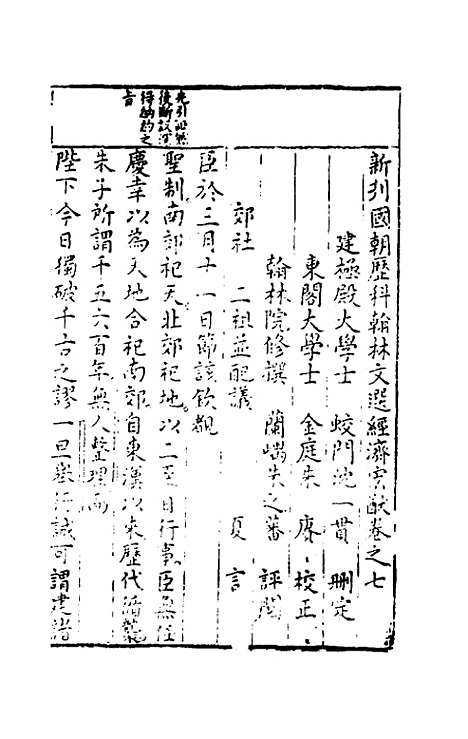 新刋國朝歷科翰林文選經濟宏猷卷之七
建極殿大學士 蛟門沈一貫 刪定
東閣大學士 金庭朱賡 校正
翰林院修撰 蘭嵎朱之蕃 評閱
郊社 二祖並配議 夏言
臣於三月十一日節該欽覩
聖制南郊祀天北郊祀地以二至日行事臣無任
慶幸以為天地合祀南郊自東漢以來歷代循襲
朱子所謂千五六百年無人整理而
陛下今日獨破千古之謬一旦舉行誠可謂建諸
先引証然
後斷議深
得納約之
旨